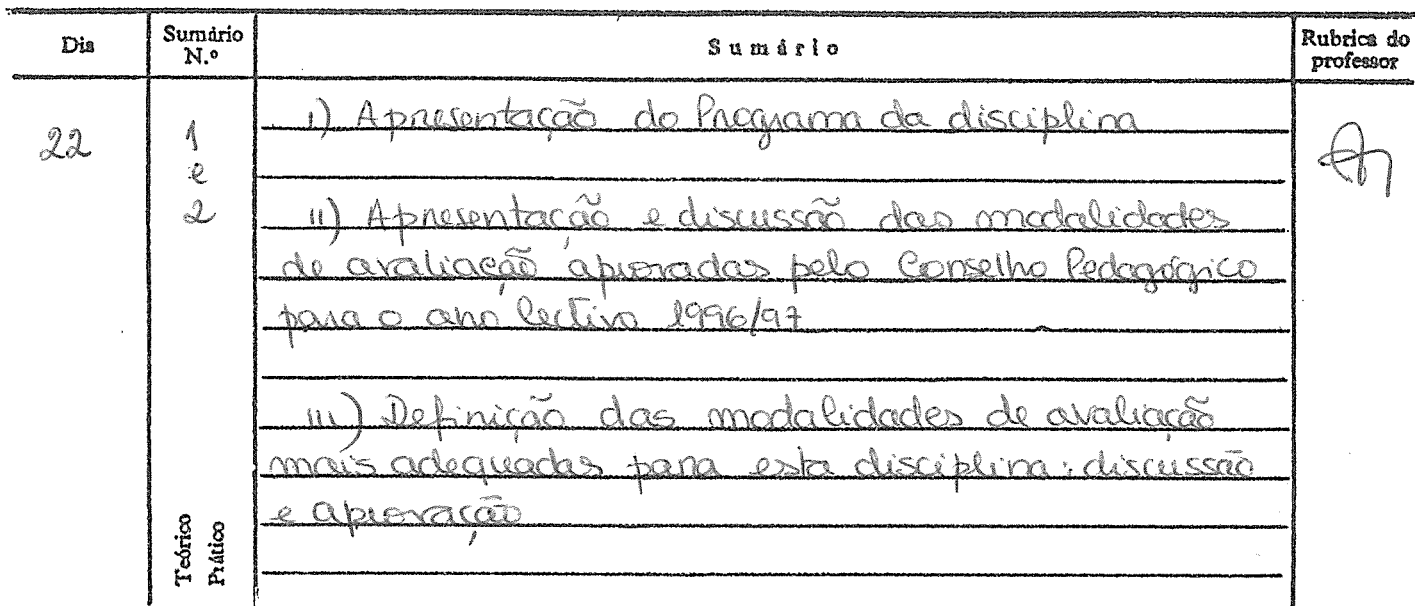 Dia Sumário N.º Sumário Rubrica do professor
22 1 e 2
i) Apresentação do Programa da disciplina
ii) Apresentação e discussão das modalidades
de avaliação aprovadas pelo Conselho Pedagógico
para o ano lectivo 1996/97
iii) Definição das modalidades de avaliação
mais adequadas para esta disciplina: discussão
e aprovação
Teórico
Prático